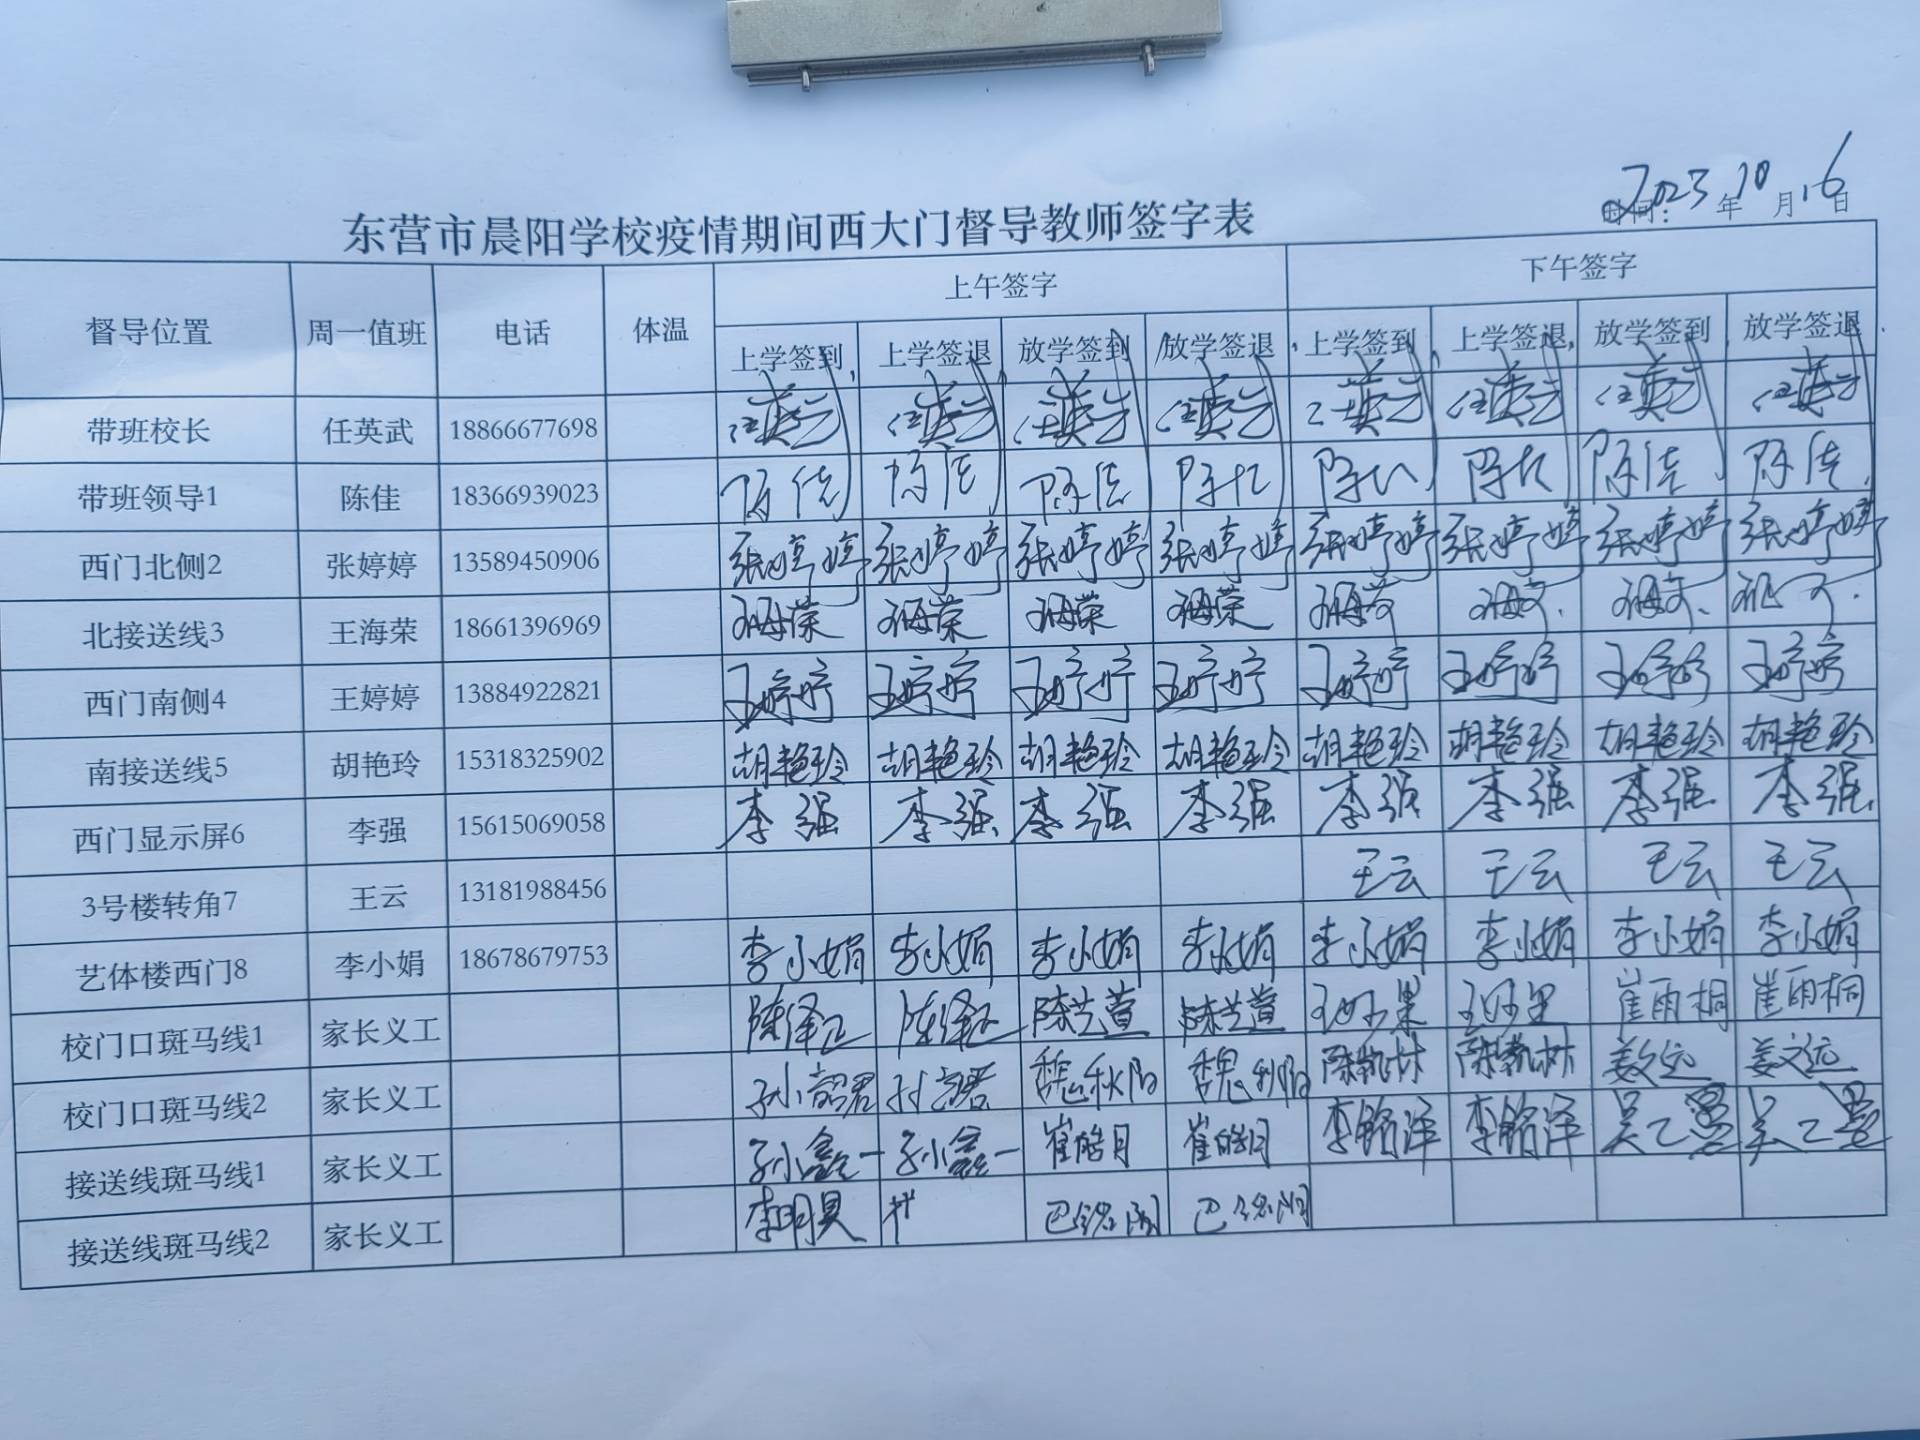 东营市晨阳学校疫情期间西大门督导教师签字表
时间：2023年10月16日
督导位置 周一值班 电话 体温 上午签字 下午签字
上学签到 上学签退 放学签到 放学签退 上学签到 上学签退 放学签到 放学签退
带班校长 任英武 18866677698
带班领导1 陈佳 18366939023 陈佳 陈佳 陈佳 陈佳 陈佳 陈佳 陈佳 陈佳
西门北侧2 张婷婷 13589450906 张婷婷 张婷婷 张婷婷 张婷婷 张婷婷 张婷婷 张婷婷 张婷婷
北接送线3 王海荣 18661396969 王海荣 王海荣 王海荣 王海荣
西门南侧4 王婷婷 13884922821 王婷婷 王婷婷 王婷婷 王婷婷 王婷婷 王婷婷 王婷婷 王婷婷
南接送线5 胡艳玲 15318325902 胡艳玲 胡艳玲 胡艳玲 胡艳玲 胡艳玲 胡艳玲 胡艳玲 胡艳玲
西门显示屏6 李强 15615069058 李强 李强 李强 李强 李强 李强 李强 李强
3号楼转角7 王云 13181988456 王云 王云 王云 王云
艺体楼西门8 李小娟 18678679753 李小娟 李小娟 李小娟 李小娟 李小娟 李小娟 李小娟 李小娟
校门口斑马线1 家长义工 陈泽正 陈泽正 陈艺萱 陈艺萱 崔雨桐 崔雨桐
校门口斑马线2 家长义工 孙韶君 魏秋阳 魏秋阳 陈凯林 陈凯林 姜文远 姜文远
接送线斑马线1 家长义工 孙鑫一 孙鑫一 崔皓月 崔皓月 李铭泽 李铭泽
接送线斑马线2 家长义工 李明昊 巴铭阳 巴铭阳